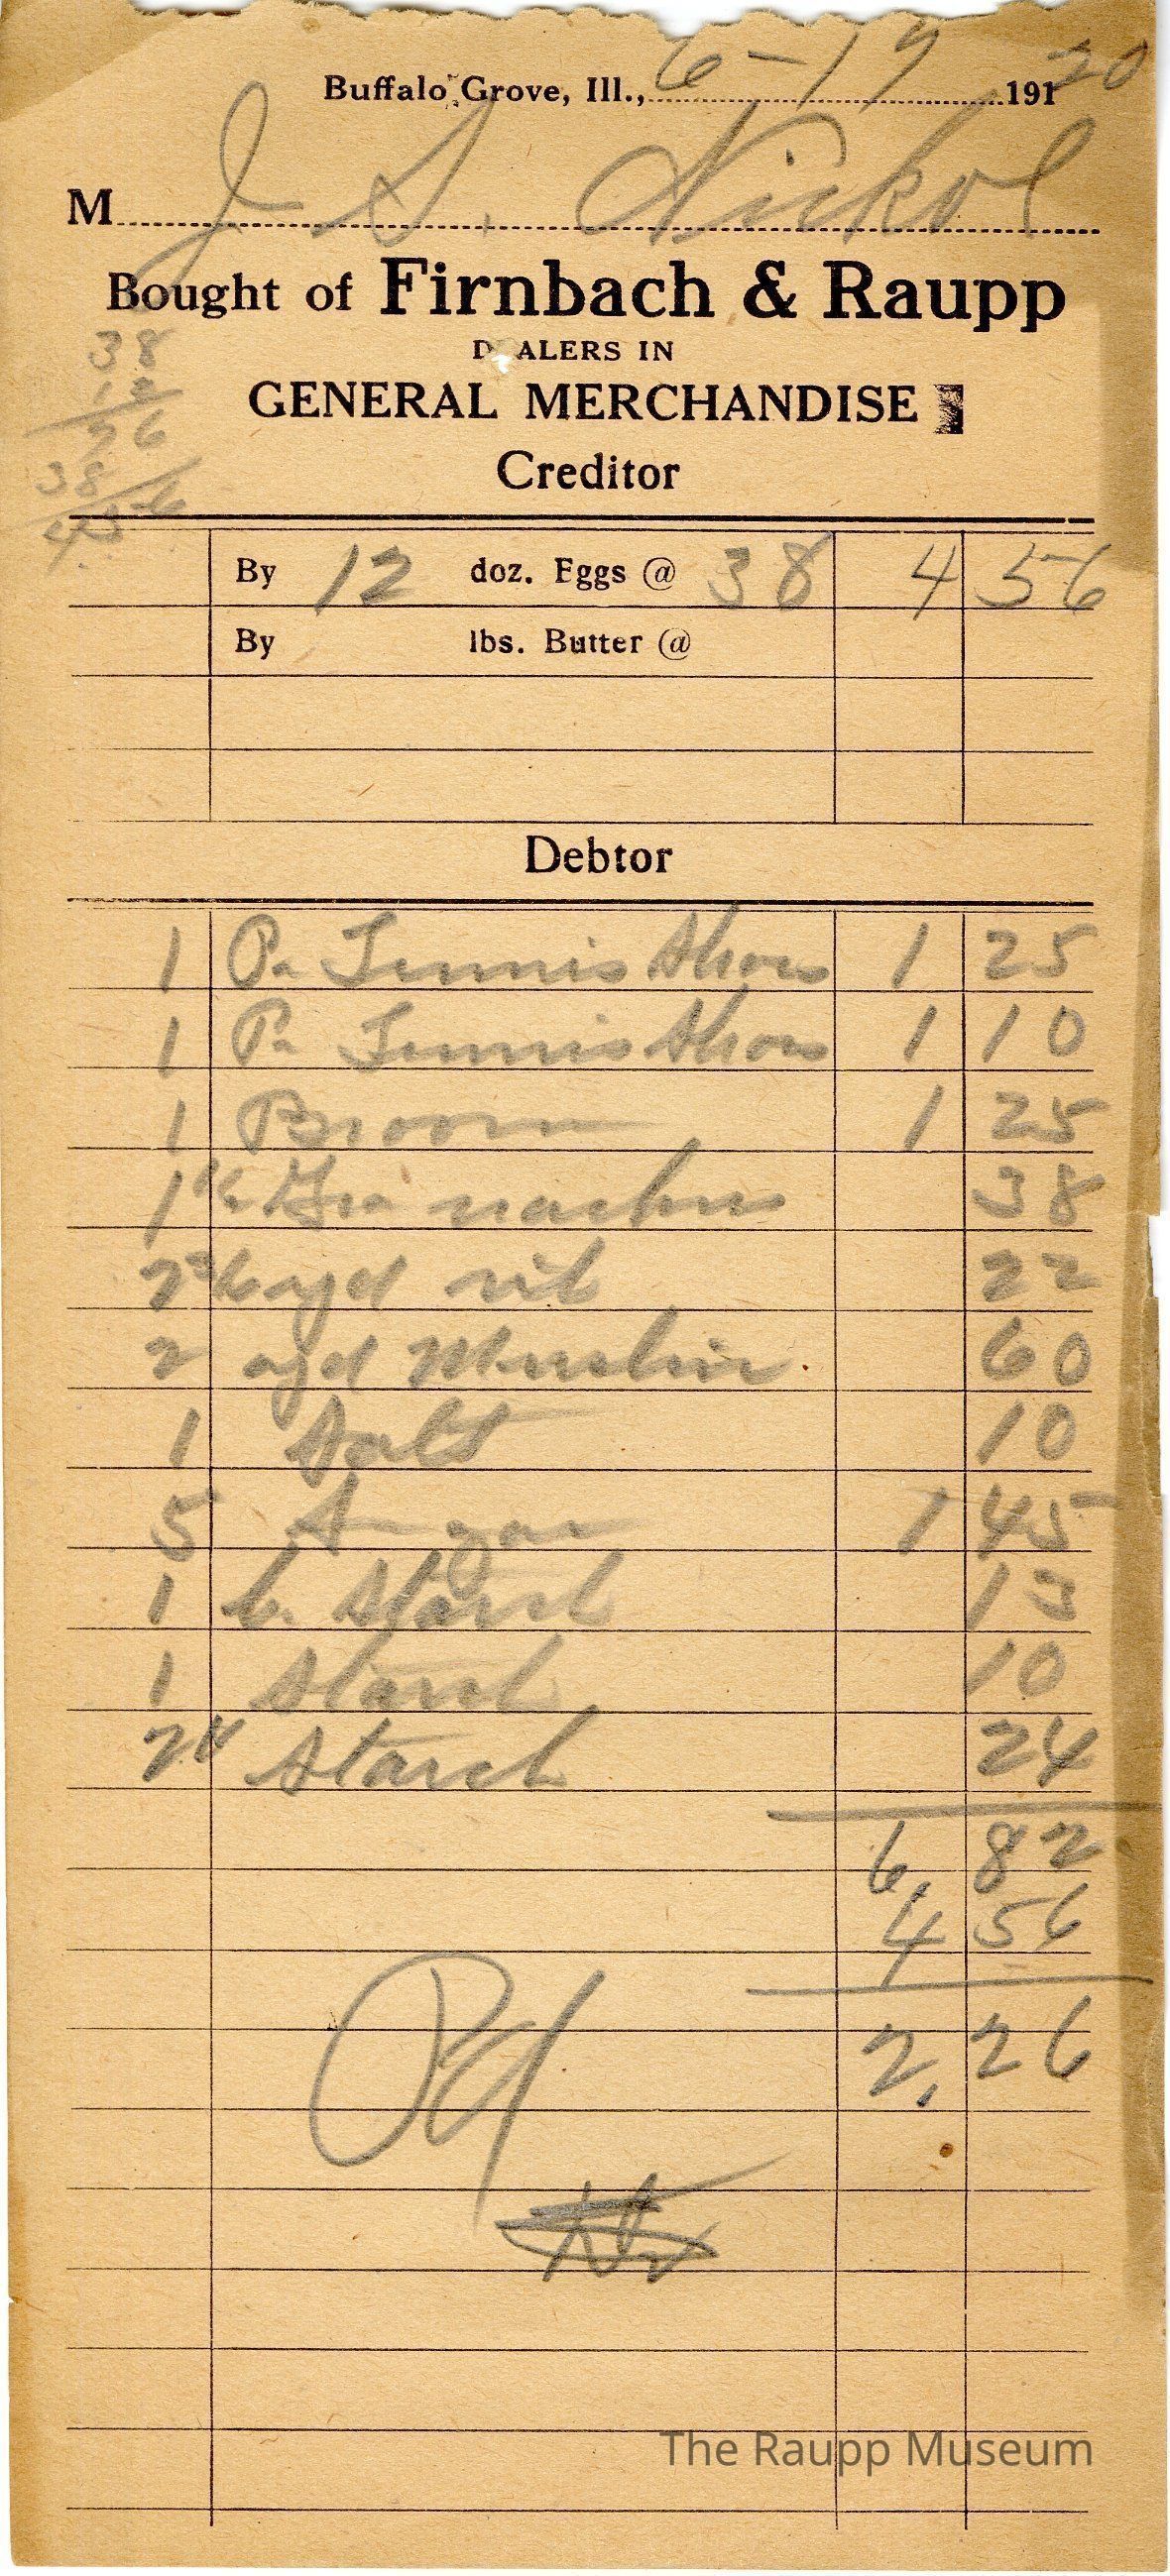 Buffalo Grove, Ill., 6-17 191 20
M J. S. Nickol
Bought of Firnbach & Raupp
DEALERS IN
GENERAL MERCHANDISE
Creditor
38
12
76
38
456
By 12 doz. Eggs @ 38 4 56
By lbs. Butter @
Debtor
1 Pr Tennis Shoes 1 25
1 Pr Tennis Shoes 1 10
1 Broom 1 25
1 38
2 yd rib 22
2 yd Muslin 60
1 Salt 10
5 Sugar 1 45
1 C. Starch 13
1 Starch 10
2# Starch 24
6.82
4 56
2.26
Pd
The Raupp Museum